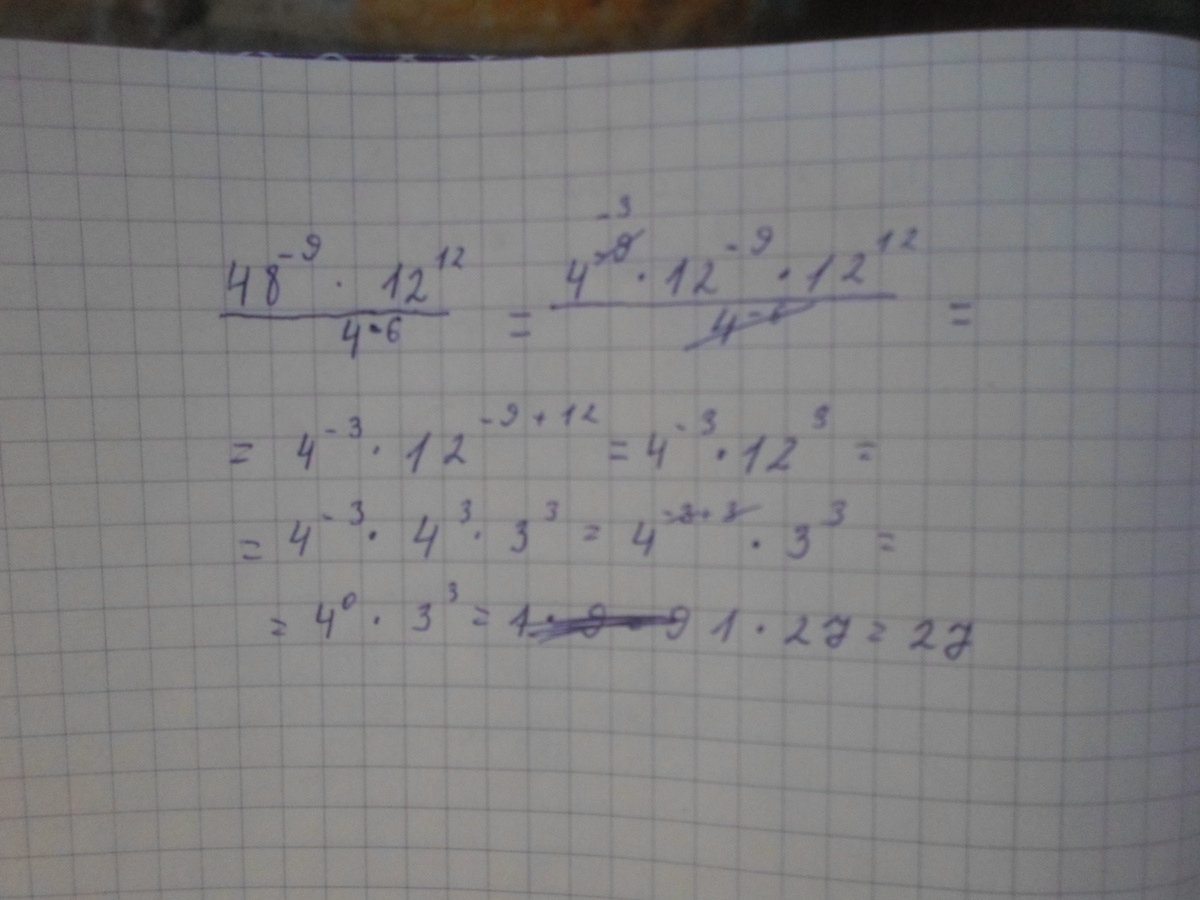 48⁻⁹ · 12¹² / 4⁻⁶ = 4⁻³ · 12⁻⁹ · 12¹² / 4⁻⁶ =
= 4⁻³ · 12⁻⁹⁺¹² = 4⁻³ · 12³ =
= 4⁻³ · 4³ · 3³ = 4⁻³⁺³ · 3³ =
= 4⁰ · 3³ = 1 · 27 = 27